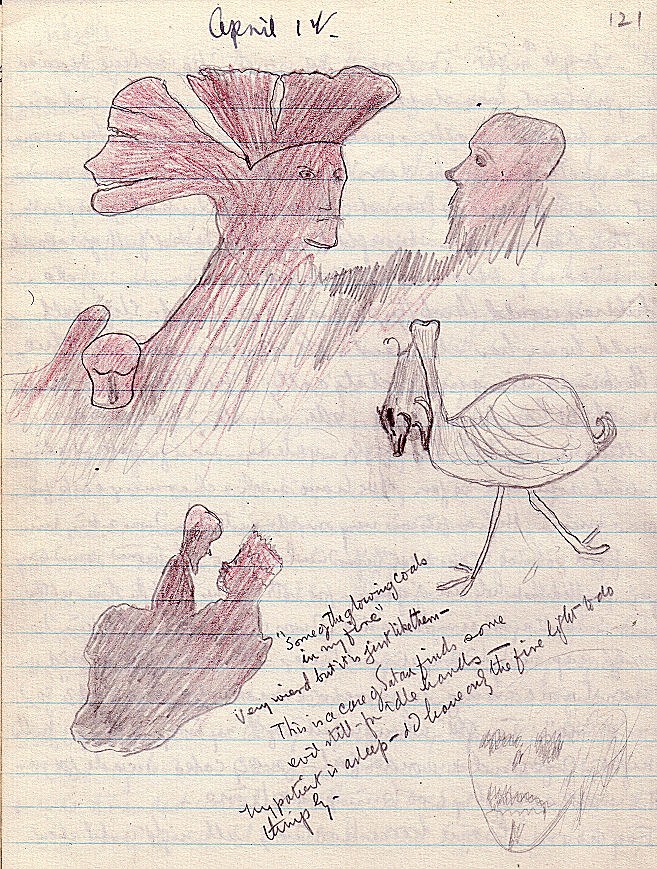 April 14-
121
"Some of the glowing coals
in my fire"
Very wierd but it is just like them-
This is a case of Satan finds some
evil still - for idle hands -
My patient is asleep - I'd have only the fire light to do
things by -